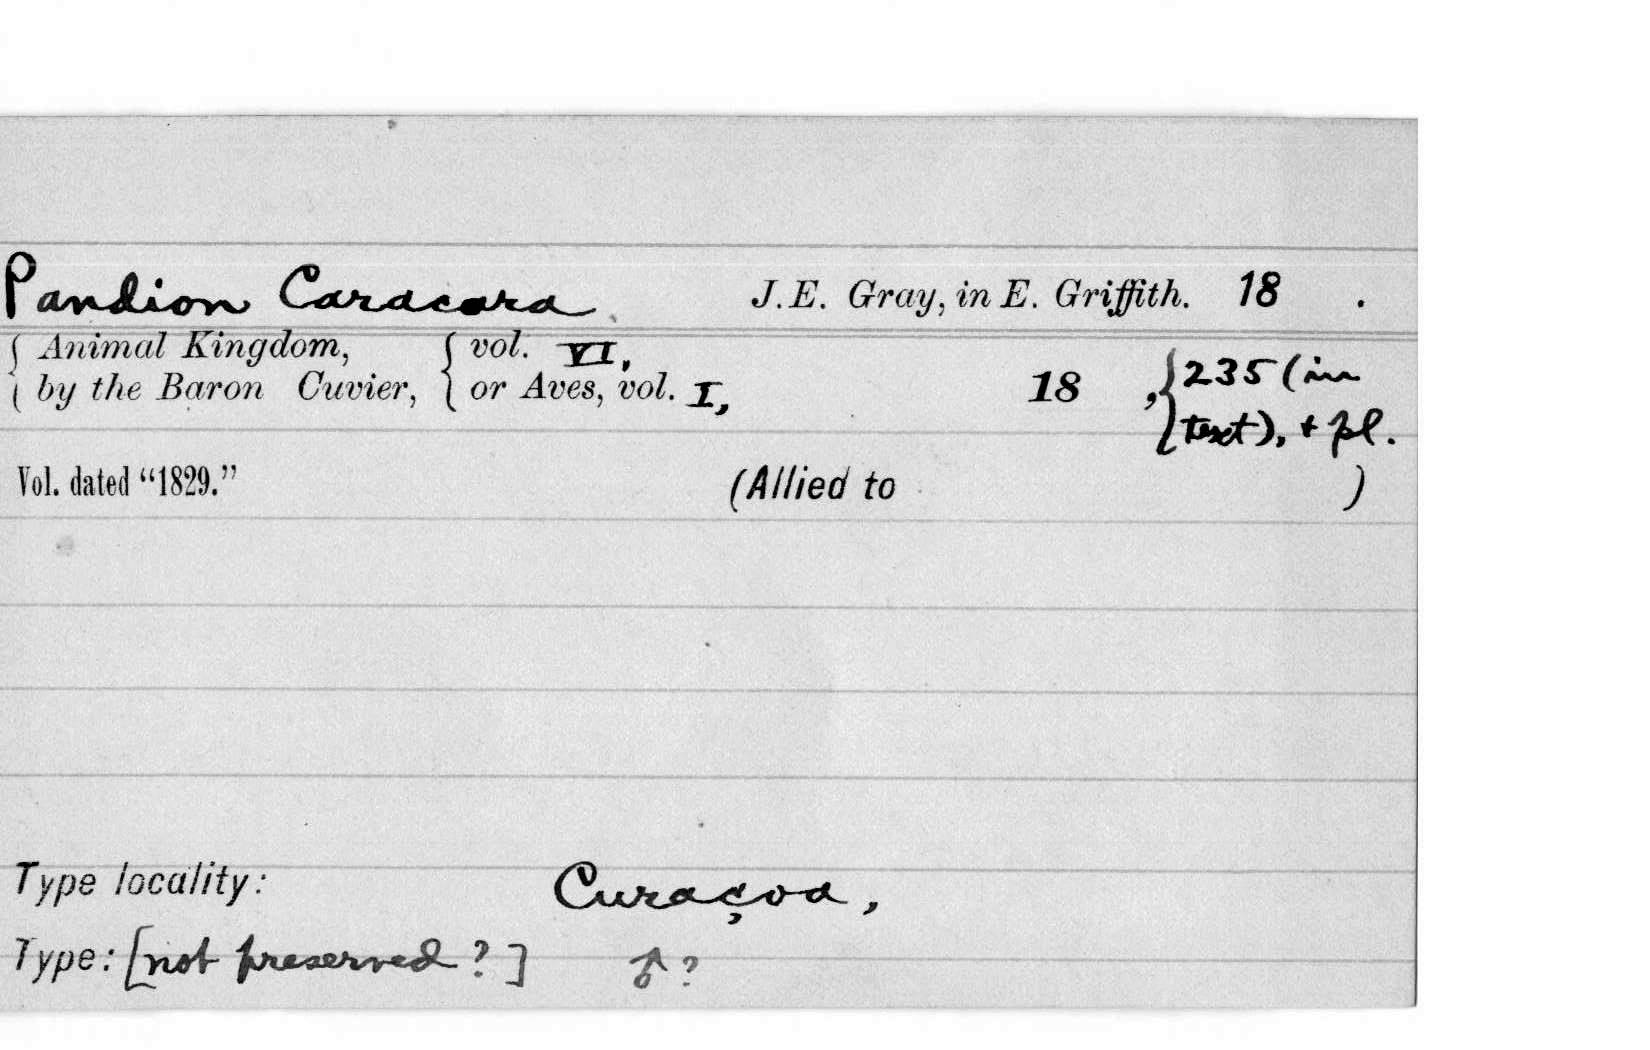 Pandion Caracara J.E. Gray, in E. Griffith. 18 .
{ Animal Kingdom, { vol. VI, 235 (in
{ by the Baron Cuvier, { or Aves, vol. I, 18 , {
text), + pl.
Vol. dated “1829.” (Allied to )
Type locality: Curaçoa,
Type: [not preserved?] ♂?